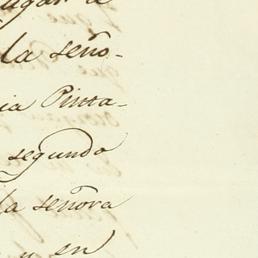 ugar a
la seño-
ia Pinta-
segundo
la señora
y en